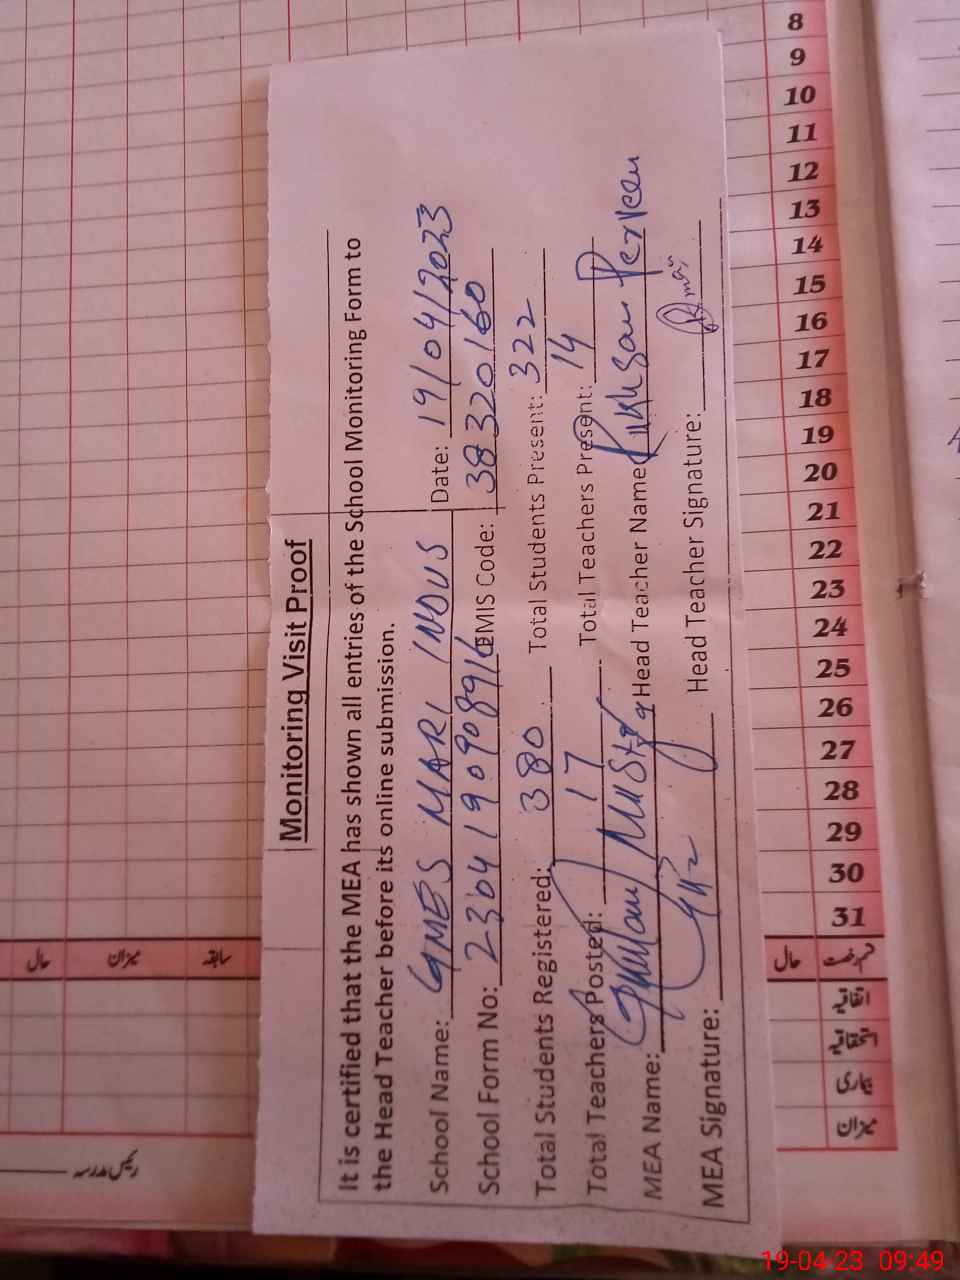 Monitoring Visit Proof
It is certified that the MEA has shown all entries of the School Monitoring Form to
the Head Teacher before its online submission.
School Name: GMES MARI INDUS Date: 19/04/2023
School Form No: EMIS Code: 38320160
Total Students Registered: 380 Total Students Present: 322
Total Teachers Posted: 17 Total Teachers Present: 14
MEA Name: Head Teacher Name Perveen
MEA Signature: Head Teacher Signature:
8
9
10
11
12
13
14
15
16
17
18
19
20
21
22
23
24
25
26
27
28
29
30
31
حال میزان سابقہ حال قسم رخصت
اتفاقیہ
استحقاقیہ
بیماری
میزان
رئیس مدرسہ
19-04-23 09:49